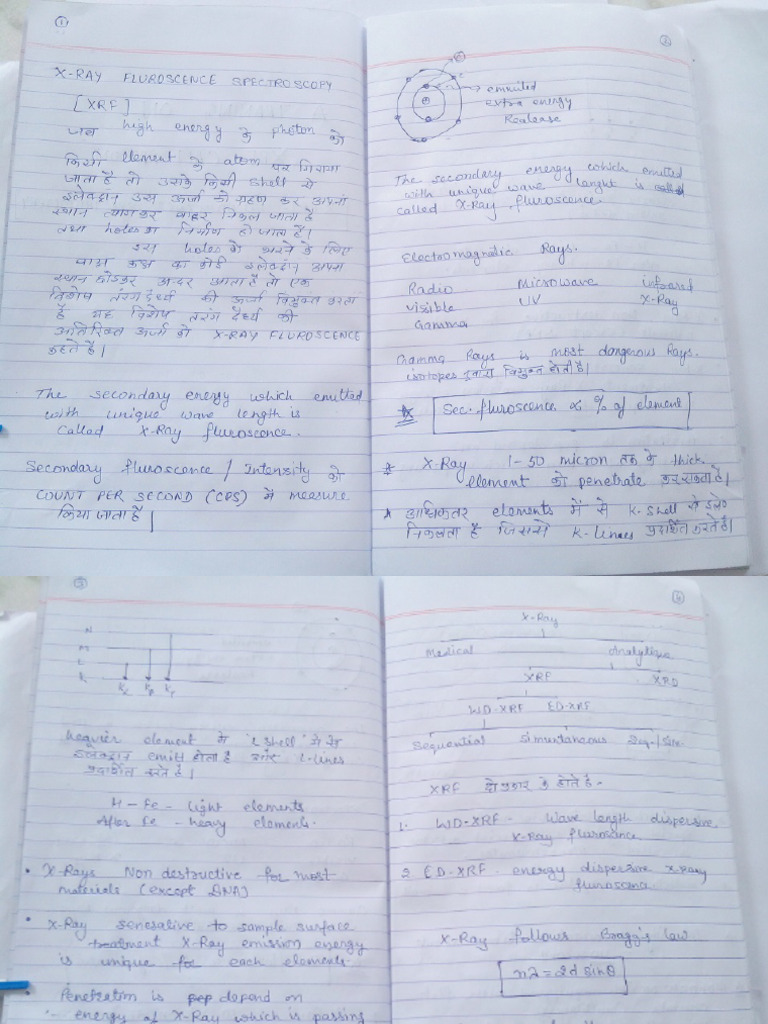 1
X-RAY FLUROSCENCE SPECTROSCOPY
[XRF]
जब high energy के photon को
किसी element के atom पर गिराया
जाता है तो उसके किसी shell से
इलेक्ट्रान उस ऊर्जा को ग्रहण कर अपना
स्थान त्यागकर बाहर निकल जाता है
तथा holes का निर्माण हो जाता है।
इस holes को भरने के लिए
बाह्य कक्ष का कोई इलेक्ट्रान अपना
स्थान छोडकर अंदर आता है तो एक
विशेष तरंगदैर्ध्य की ऊर्जा विमुक्त करता
है यह विशेष तरंग दैर्ध्य की
अतिरिक्त ऊर्जा को X-RAY FLUROSCENCE
कहते है।
The secondary energy which emitted
with unique wave length is
Called X-Ray fluroscence.
Secondary fluroscence / Intensity को
COUNT PER SECOND (CPS) में measure
किया जाता है।
2
→ emmited
extra energy
Realease
The secondary energy which emitted
with unique wave lenght is
called X-Ray fluroscence.
Electromagnetic Rays.
Radio Microwave infrared
visible UV X-Ray
Gamma
Ghamma Rays is most dangerous Rays.
isotopes द्वारा विमुक्त होती है।
Sec. fluroscence ∝ % of element
* X-Ray 1-50 micron तक के thick
element को penetrate कर सकता है।
* अधिकतर elements में से K-shell से इले०
निकलता है जिससे K-lines प्रदर्शित करते है।
3
N
M
L
K
Kα Kβ Kγ
heavier element में 'L shell' में से
इलेक्ट्रान emit होता है और L-lines
प्रदर्शित करते है।
H - Fe - light elements
After Fe - heavy elements.
• X-Rays Non destructive for most
materials (except DNA)
• X-Ray senserative to sample surface
treatment X-Ray emission energy
is unique for each elements.
• Penetration is depend on
energy of X-Ray which is passing
4
X-Ray
Medical Analytique
XRF XRD
WD-XRF ED-XRF
Sequential Simuntaneous Seq./Sim.
XRF दो प्रकार के होते है -
1. WD-XRF - Wave length dispersive
X-Ray flurosance
2 ED-XRF - energy dispersive X-Ray
fluroscena.
X-Ray follows Bragg's law
nλ = 2d sinθ